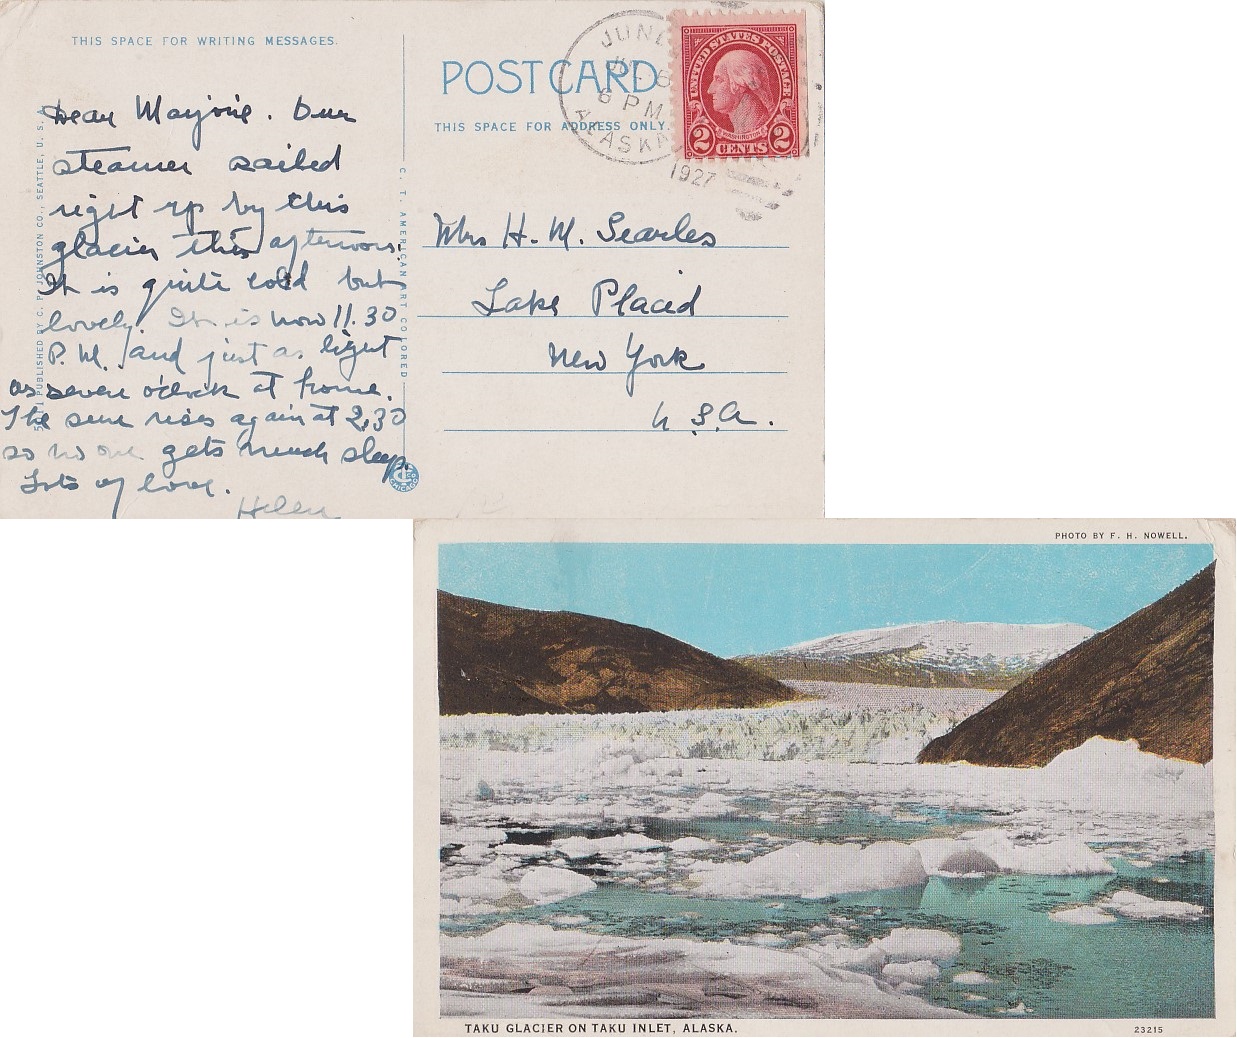 THIS SPACE FOR WRITING MESSAGES.
Dear Marjorie. Our
steamer sailed
right up by this
glacier this afternoon.
It is quite cold but
lovely. It is now 11.30
P.M. and just as light
as seven o'clock at home.
The sun rises again at 2.30
so no one gets much sleep.
Lots of love.
Helen
PUBLISHED BY C. P. JOHNSTON CO., SEATTLE, U. S. A.
C. T. AMERICAN ART COLORED
CHICAGO
POST CARD
THIS SPACE FOR ADDRESS ONLY.
6 PM
ALASKA
1927
UNITED STATES POSTAGE
WASHINGTON
2 CENTS 2
Mrs H. M. Searles
Lake Placid
New York
U.S.A.
PHOTO BY F. H. NOWELL.
TAKU GLACIER ON TAKU INLET, ALASKA.
23215